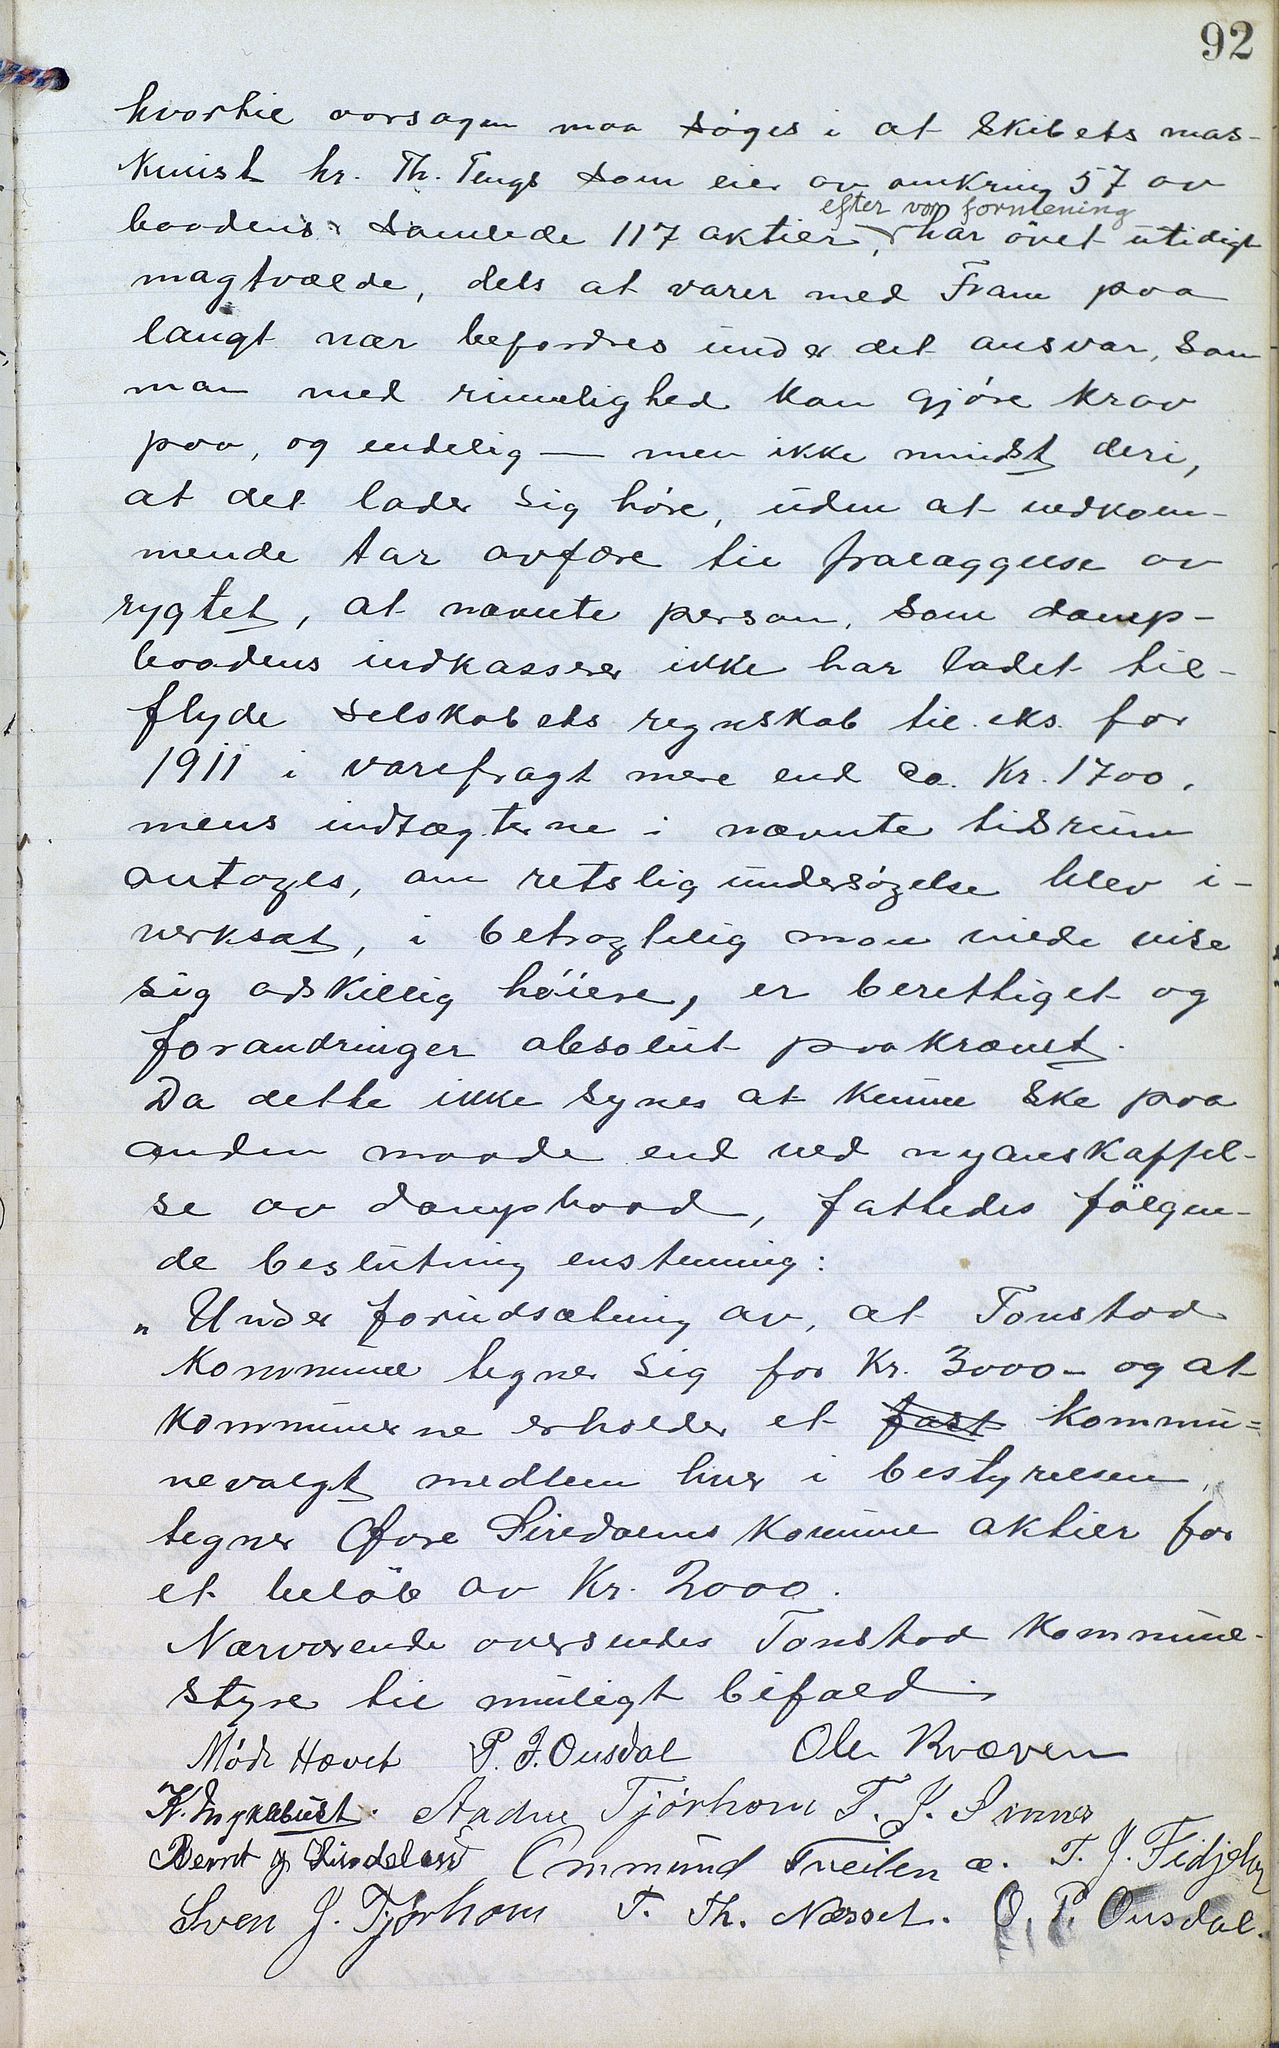 92
hvortil aarsagen maa søges i at skibets mas-
kinist hr. Th. Tengs som eier av omkring 57 av
baadens samlede 117 aktier, efter vor formening har övet utidigt
magtvælde, dels at varer med Fram paa
langt nær befordres under det ansvar, som
man med rimelighed kan gjöre krav
paa, og endelig — men ikke mindst deri,
at det lader sig høre, uden at vedkom-
mende tar avfære til fralæggelse av
rygtet, at nævnte person, som damp-
baadens indkasserer ikke har ladet til-
flyde selskabets regnskab til. eks. for
1911 i varefragt mere end ca. Kr. 1700,
mens indtægterne i nævnte tidsrum
antages, om retslig undersøgelse blev i-
verksat, i betragtelig mon vilde vise
sig adskillig höiere, er berettiget og
forandringer absolut paakrævet.
Da dette ikke synes at kunne ske paa
anden maade end ved nyanskaffel-
se av dampbaad, fattedes følgen-
de beslutning enstemmig:
„Under forudsætning av, at Tonstad
kommune tegner sig for Kr. 3000- og at
kommunerne erholder et fast kommu=
nevalgt medlem hver i bestyrelsen,
tegner Øvre Siredalens komune aktier for
et beløb av Kr. 2000.
Nærværende oversendes Tonstad kommune-
styre til muligt bifald.
Møde Hævet P. J. Ousdal Ole Kvæven
K. Myklebust. Aadne Tjörhom T. J. Sinnes
Bernt J Lindeland Ommund Tveiten æ. T. J. Fidjeland
Sven J. Tjörhom T. Th. Næsset. O. P. Ousdal.